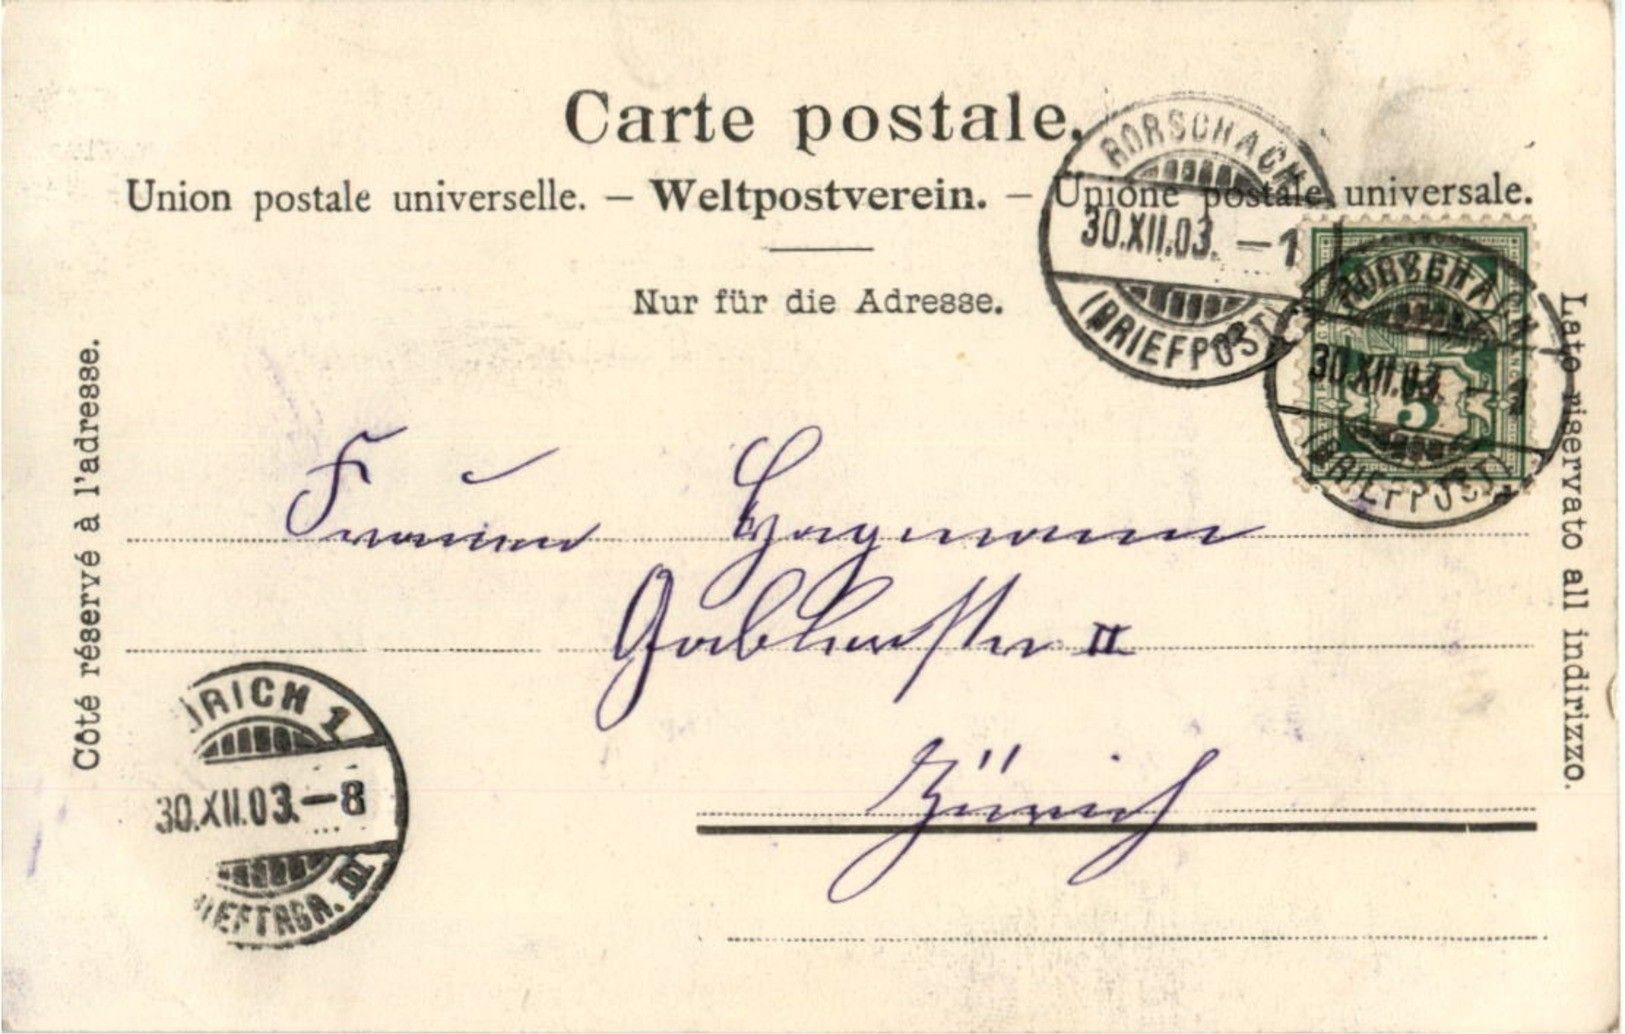 Carte postale.
Union postale universelle. — Weltpostverein. — Unione postale universale.
Nur für die Adresse.
Côté réservé à l'adresse.
Lato riservato all indirizzo.
RORSCHACH
30.XII.03.-1
(BRIEFPOST)
RORSCHACH
30.XII.03.-1
(BRIEFPOST)
5
Hagemann
II
Zürich
ÜRICH 1
30.XII.03.-8
RIEFTRGR. III